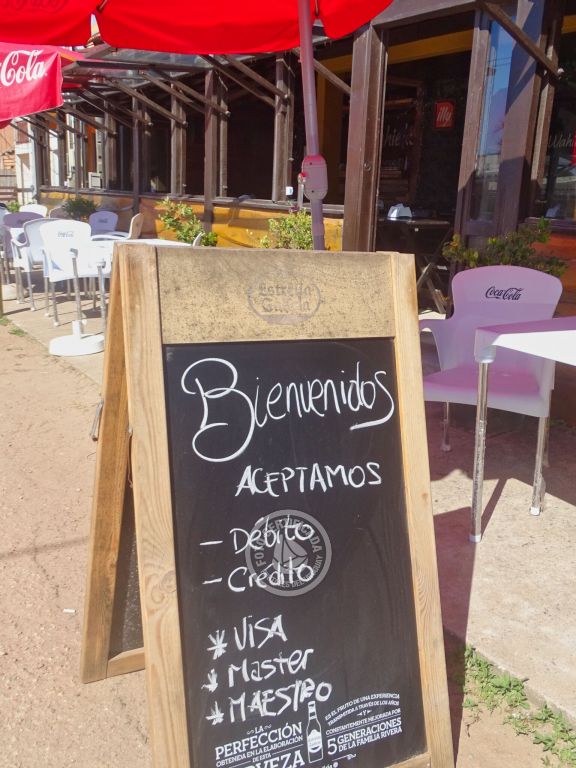 Cola
Estrella
Galicia
Coca-Cola
Bienvenidos
ACEPTAMOS
- Débito
- Crédito
VISA
Master
MAESTRO
LA
PERFECCIÓN
OBTENIDA EN LA ELABORACIÓN
DE ESTA
ES EL FRUTO DE UNA EXPERIENCIA
TRANSMITIDA A TRAVÉS DE LOS AÑOS
Y
CONSTANTEMENTE MEJORADA POR
5 GENERACIONES
DE LA FAMILIA RIVERA